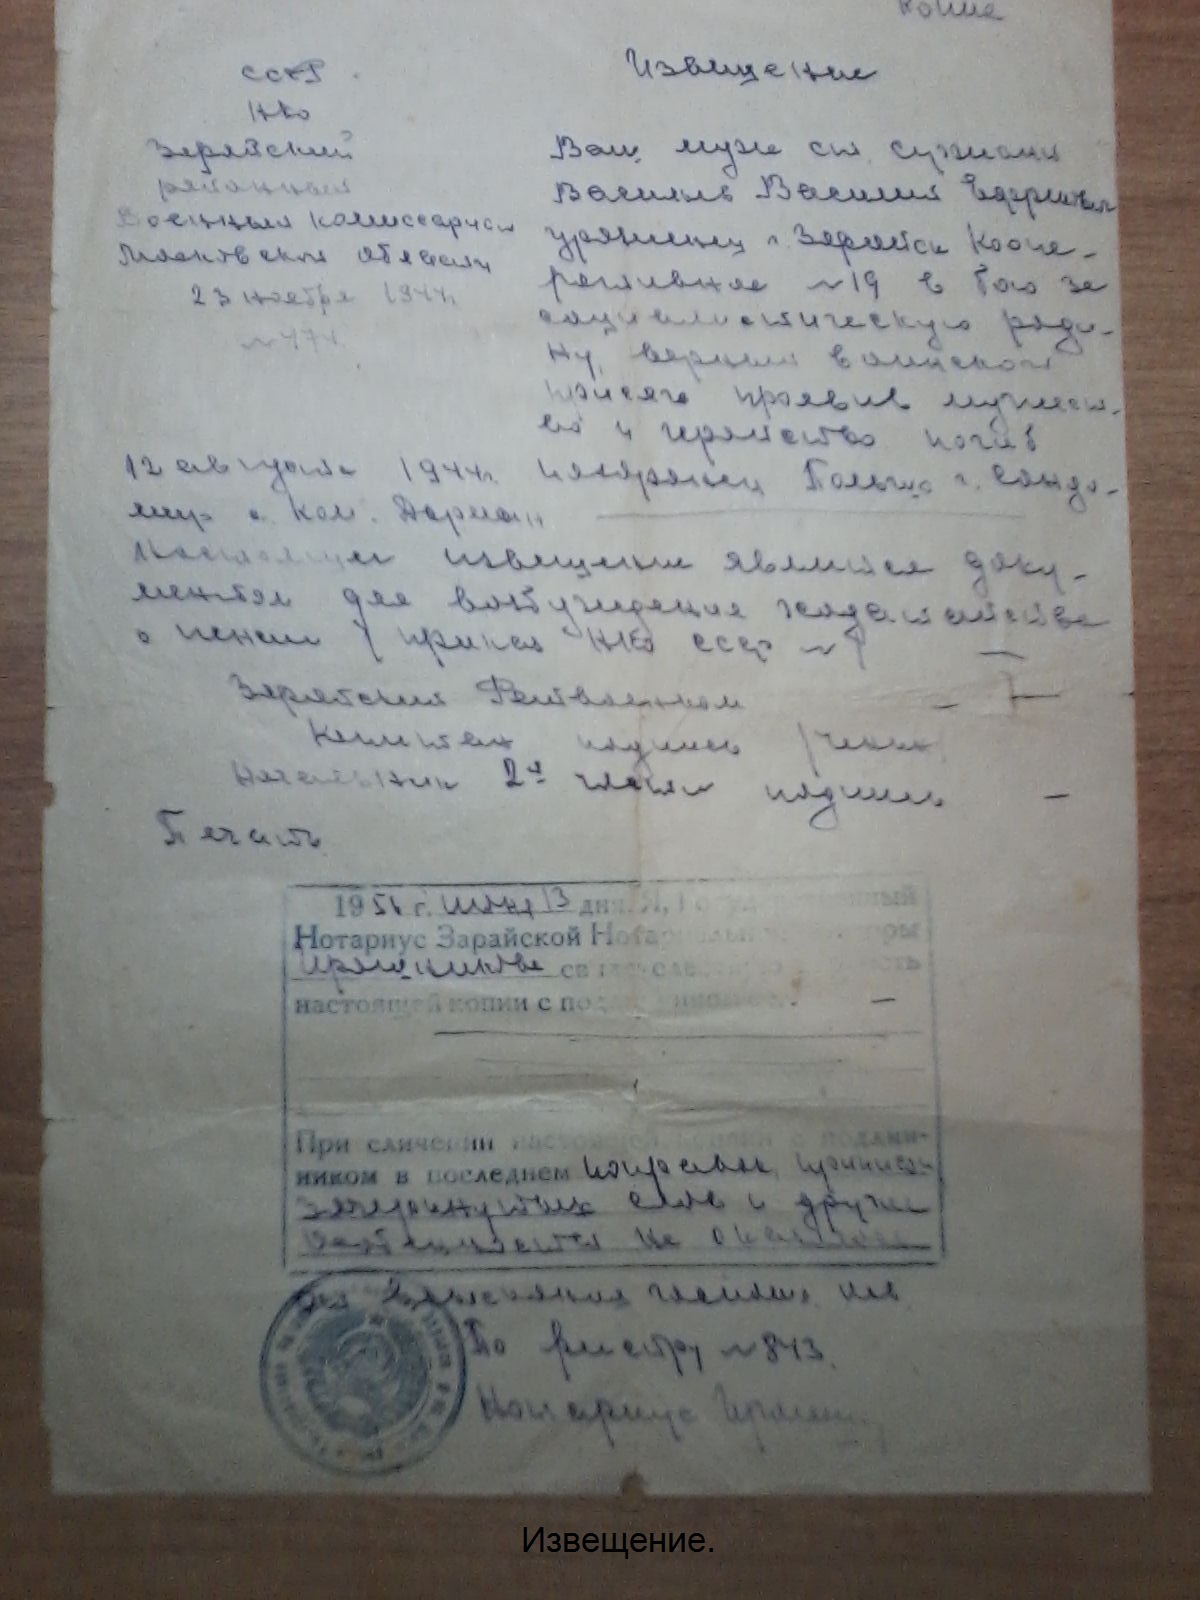 Копия
СССР
НКО
Зарайский
районный
Военный комиссариат
Московской области
23 ноября 1944г.
Извещение
Ваш муж
Василь Василий
уроженец г. Зарайск Коопе-
ративная №19 в бою за
социалистическую роди-
ну, верный воинской
присяге проявив мужест-
во и геройство погиб
12 августа 1944г. Польша г. Сандо-
мир
Настоящее извещение является доку-
ментом для возбуждения ходатайства
о пенсии (приказ НКО СССР №
Зарайский Райвоенком
Капитан подпись
Начальник 2й части подпись
Печать
19 г. 13 дня. Я, Государственный
Нотариус Зарайской Нотариальной конторы
свидетельствую верность
настоящей копии с подлинником.
При сличении настоящей копии с подлин-
ником в последнем поправок, приписок
зачеркнутых слов и других
особенностей не оказалось
взыскания госпошл.
По реестру №843.
Нотариус
Извещение.